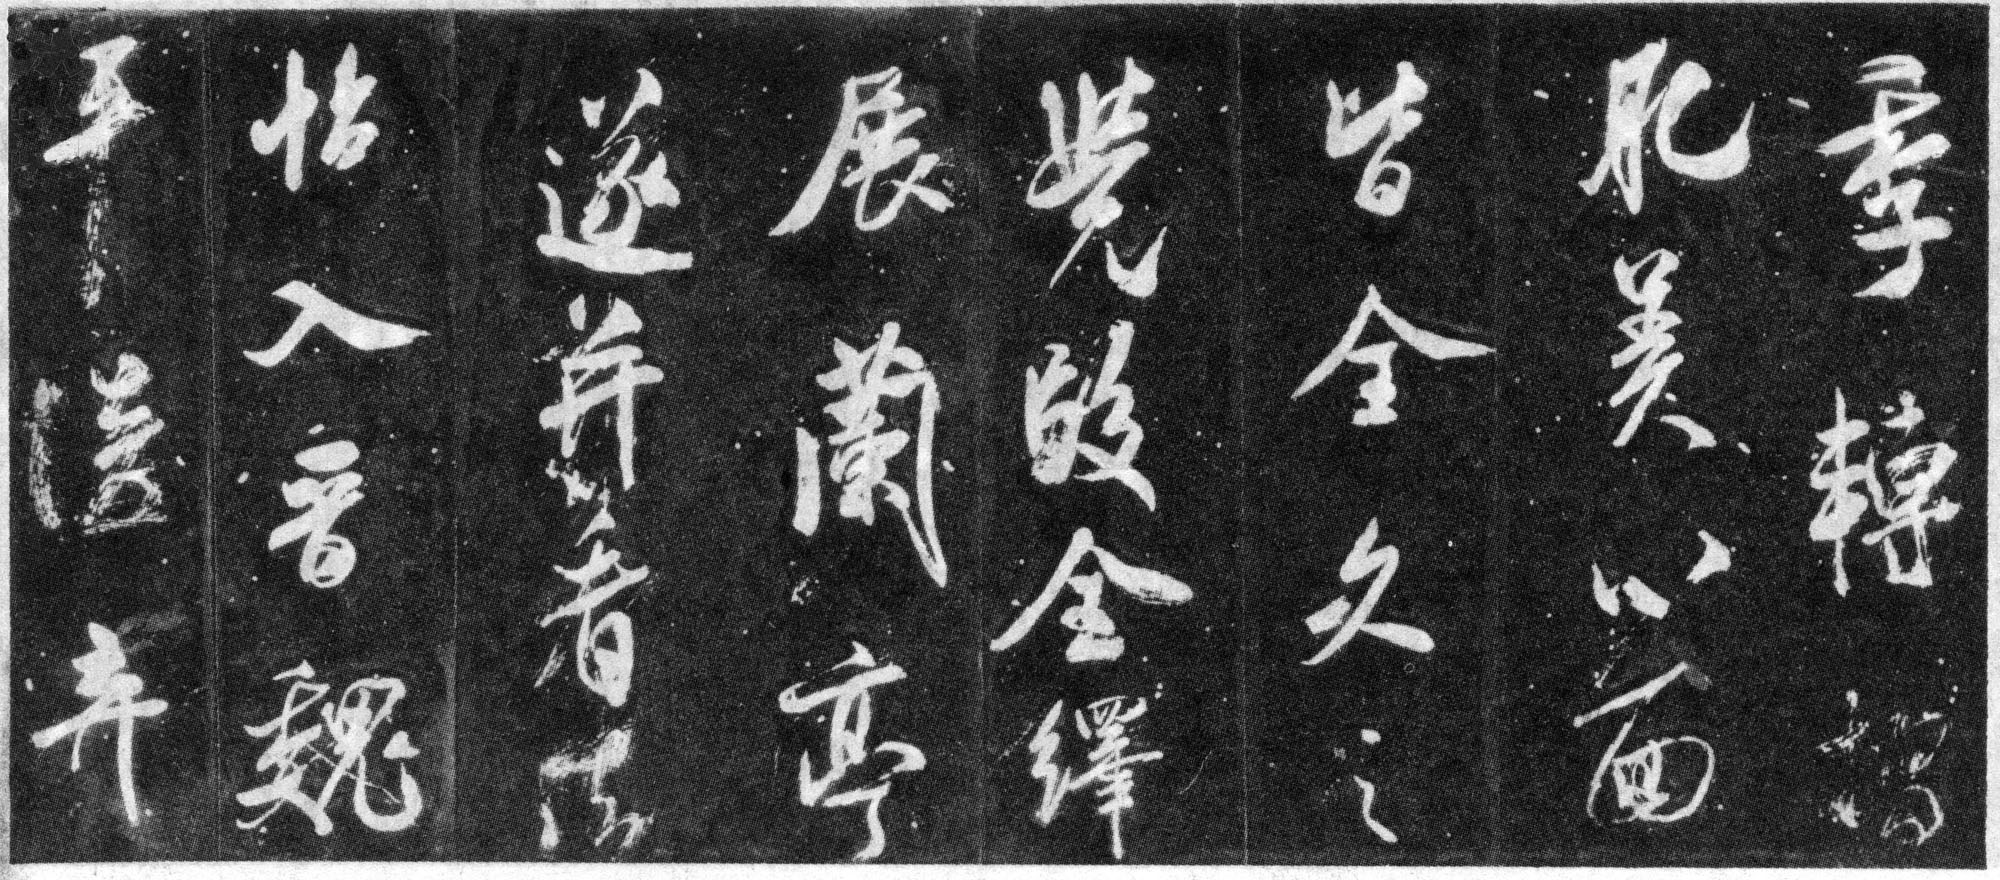 季轉摺
肥美八面
皆全久之
覺段全繹
展蘭亭
遂并看法
帖入晉魏
平淡弃